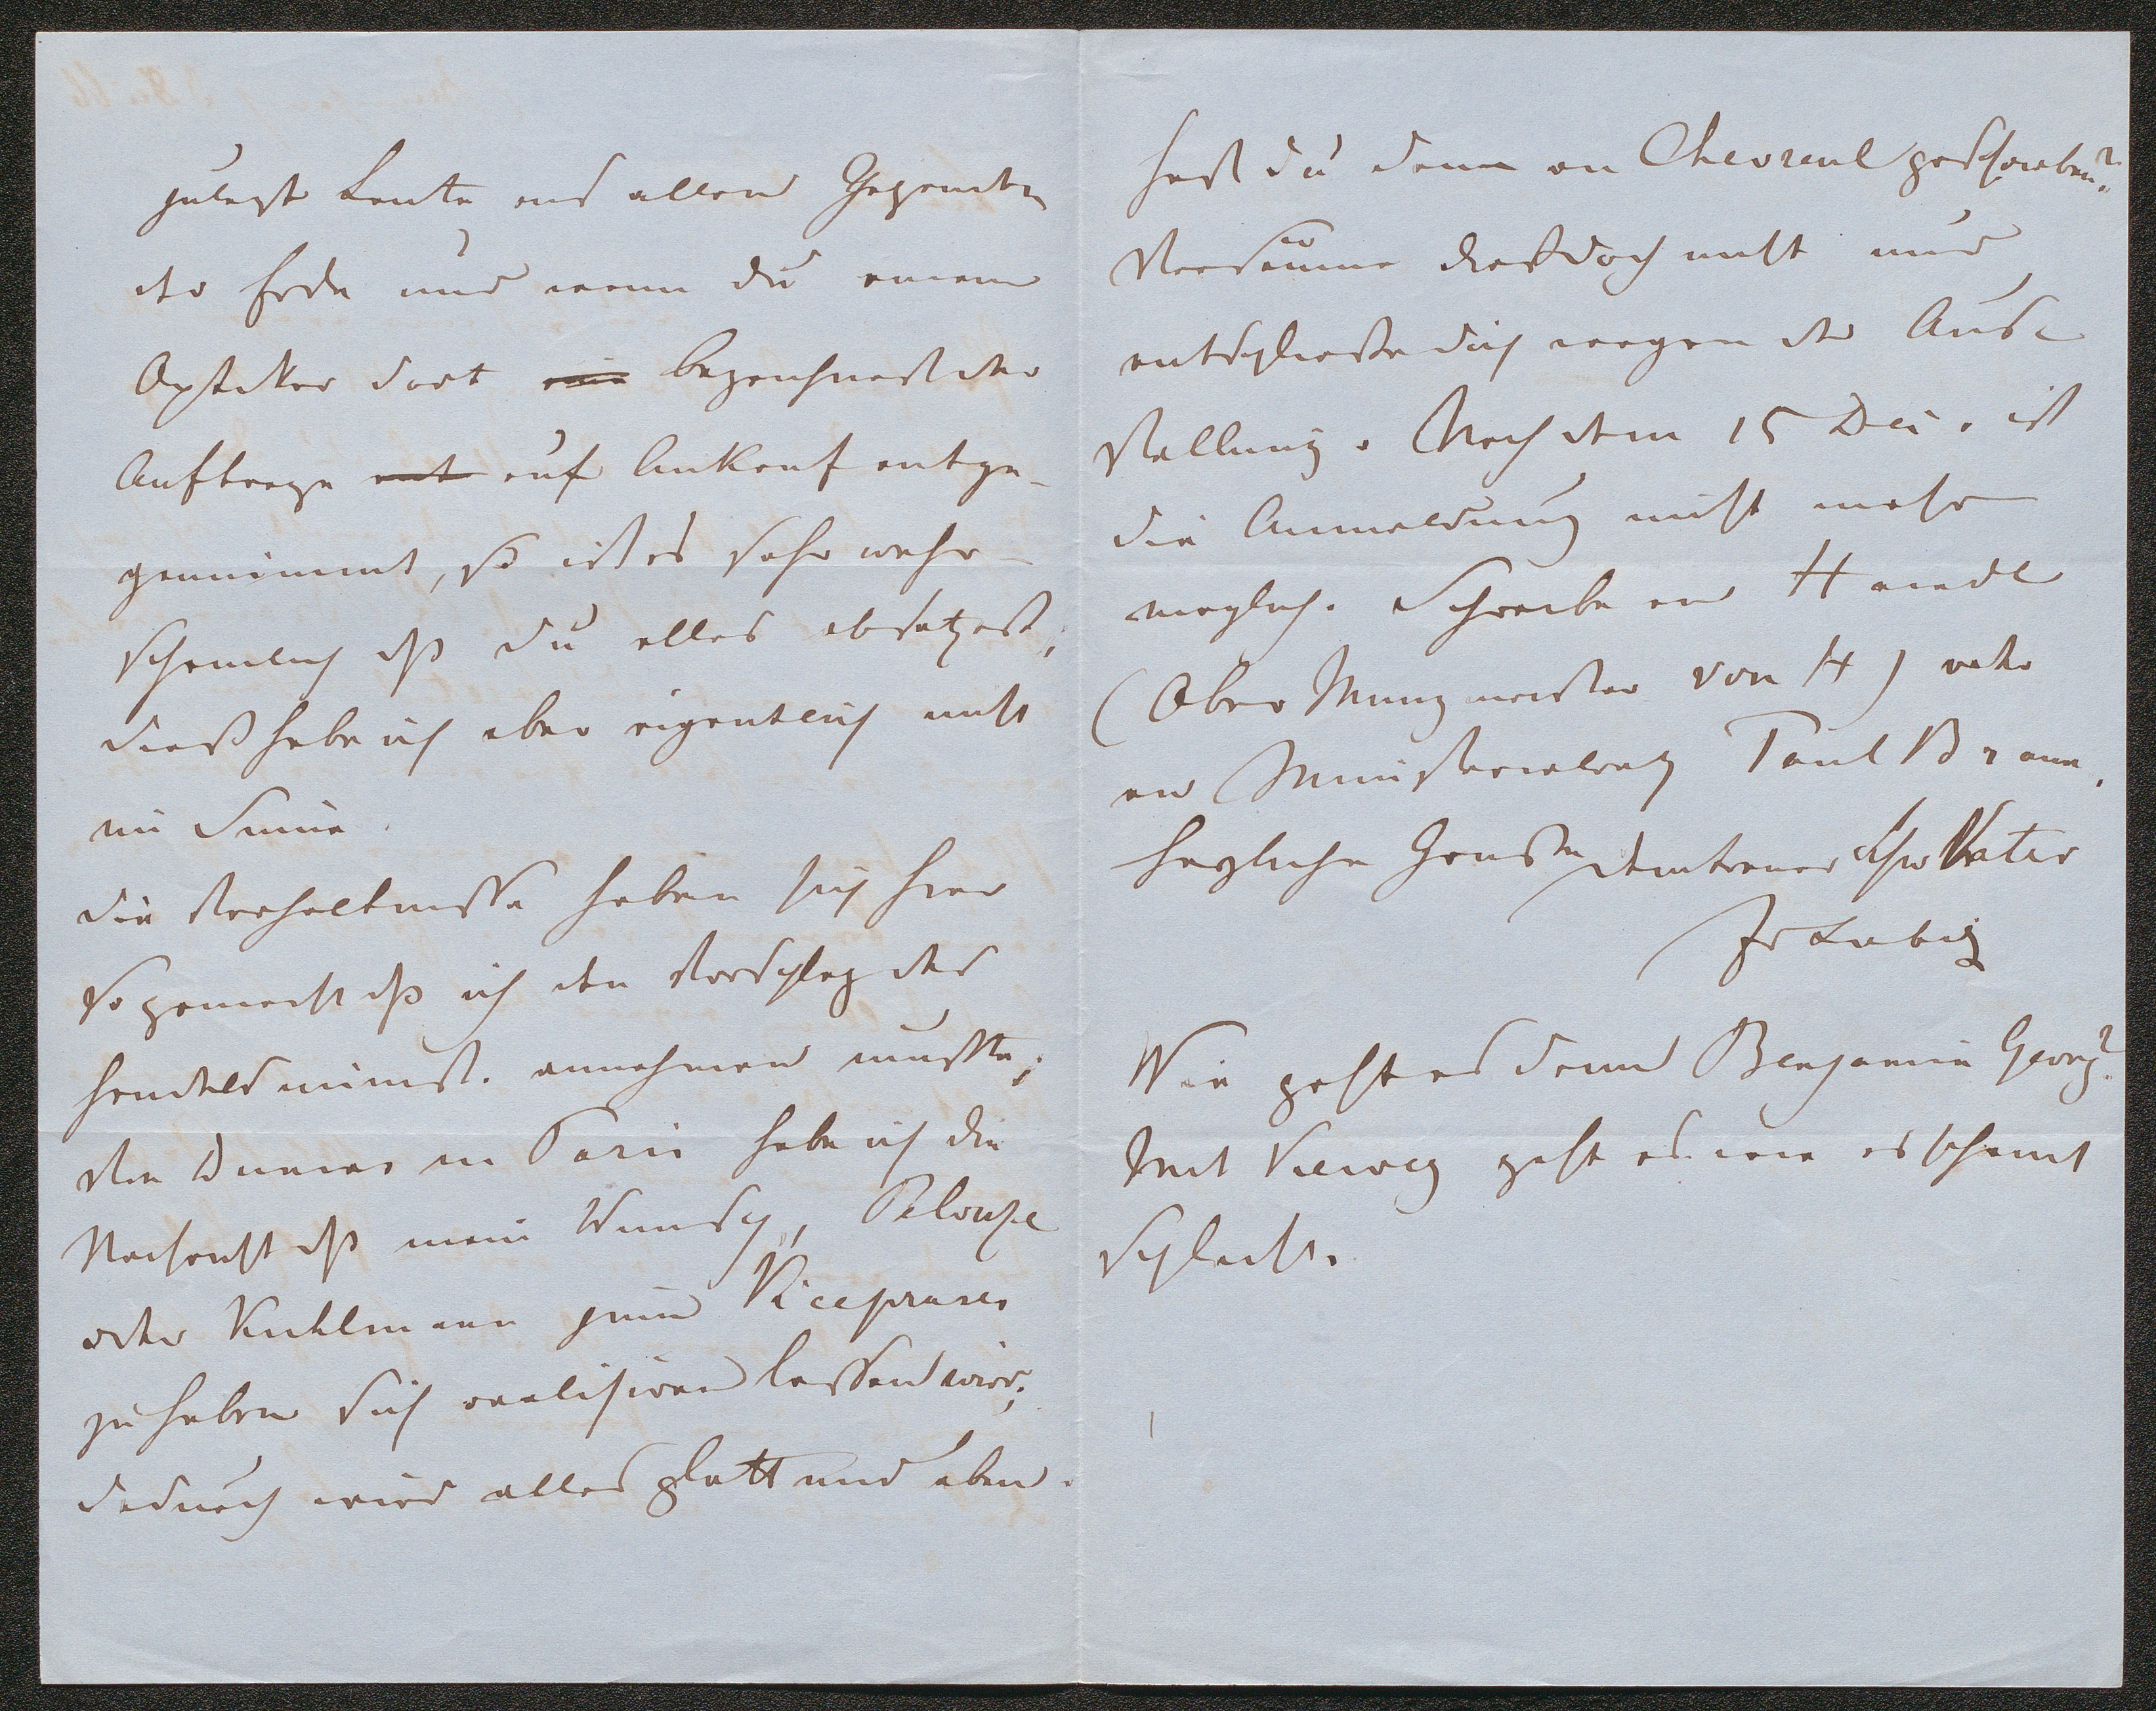 zuletzt Leute aus allen Gegenden
der Erde und wenn du einen
Optiker dort ein bezeichnest der
Auftrage ent auf Ankauf entge-
gennimmt, so ist es sehr wahr-
scheinlich dß du alles absetzest;
dieß habe ich aber eigentlich nicht
im Sinne.
Die Verhaltnisse haben sich hier
so gemacht dß ich den Vorschlag des
Handelsminist. annehmen mußte;
Von Dumas in Paris habe ich die
Nachricht dß mein Wunsch, Pelouze
oder Kuhlmann zum Viceprases
zu haben sich realisiren lassen wird;
dadurch wird alles glatt und eben.
Hast du denn an Chevreul geschrieben?
Versäume dieß doch nicht und
entschließe dich wegen der Aus-
stellung. Nach dem 15 Dec. ist
die Anmeldung nicht mehr
moglich. Schreibe an Haindl
(Ober Munzmeister von H) oder
an Ministerialrath Paul Braun.
Herzliche Grüße dein treuer Vater
Jv Liebig
Wie geht es denn Benjamin Georg?
Mit Vieweg geht es wie es scheint
schlecht.